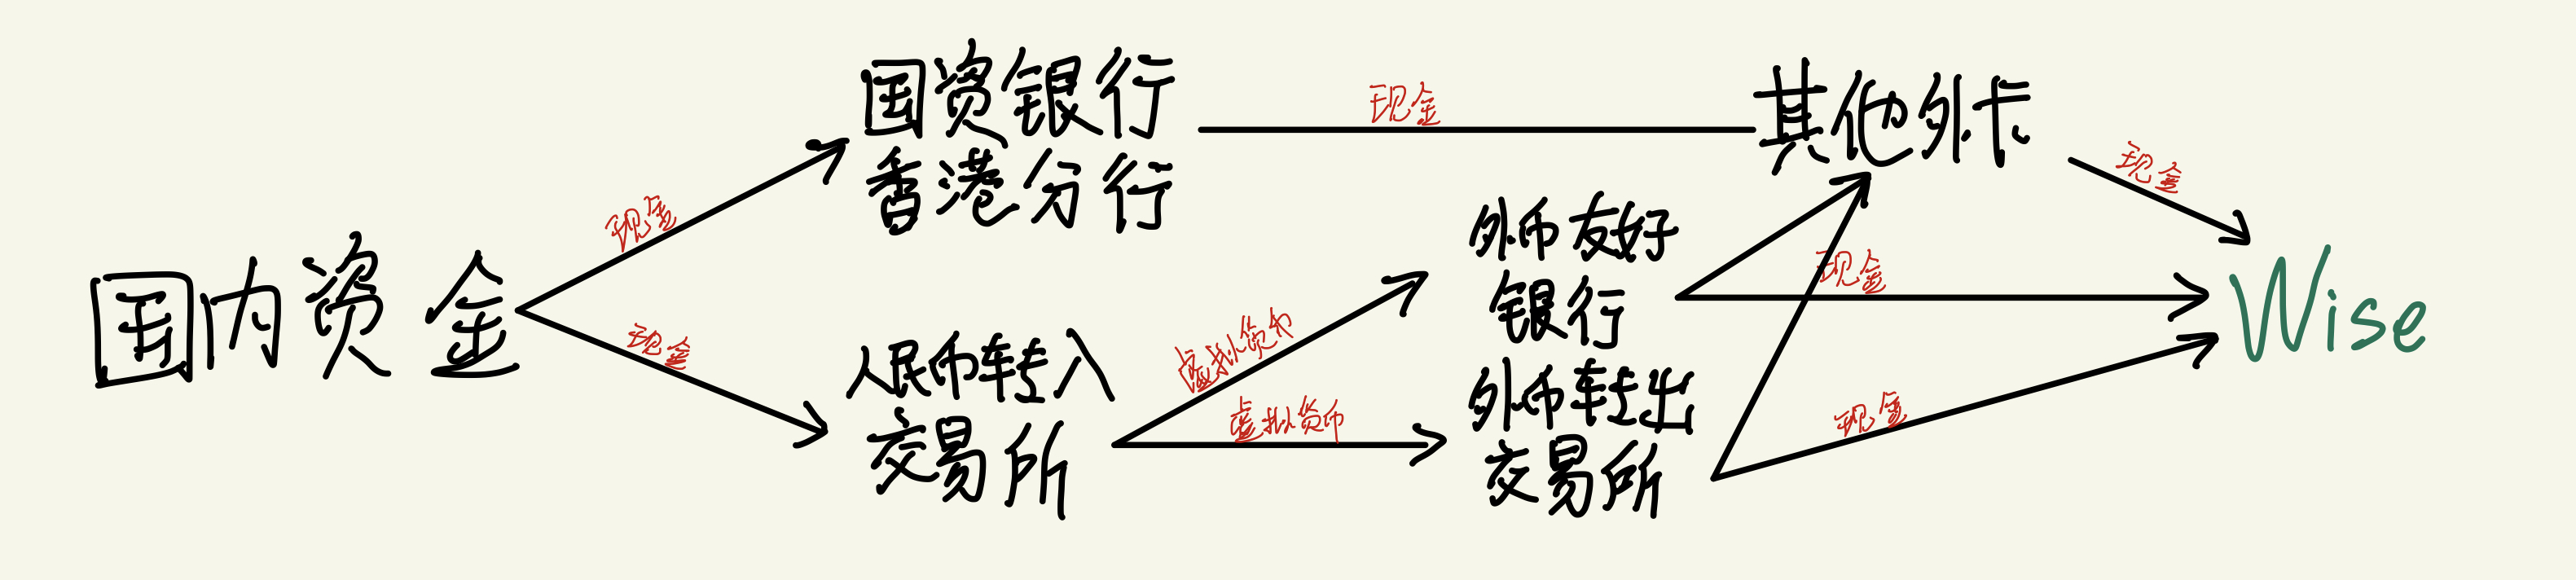 国内资金
现金
现金
国资银行
香港分行
人民币转入
交易所
现金
虚拟货币
虚拟货币
其他外卡
外币友好
银行
外币转出
交易所
现金
现金
现金
Wise